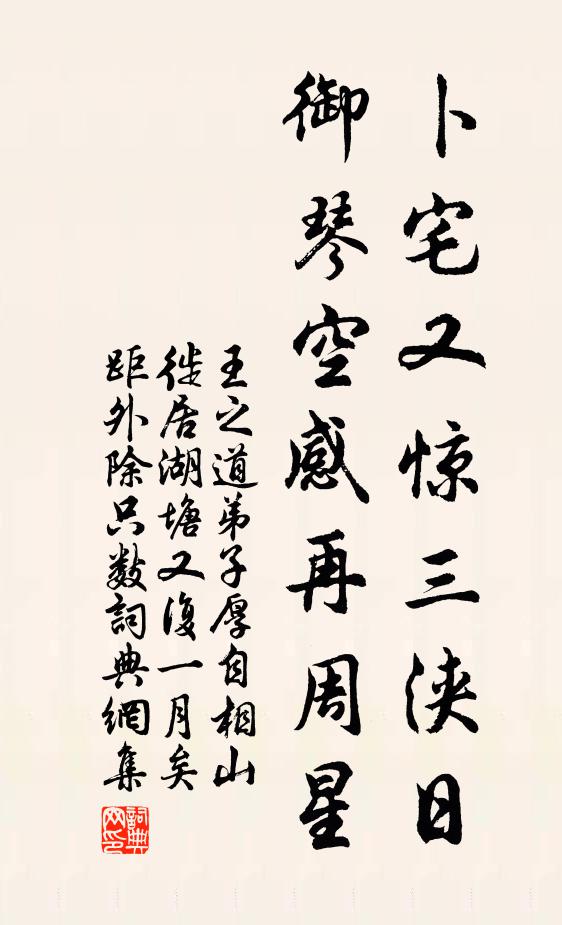 卜宅又惊三浃日
御琴空感再周星
王之道弟子厚自相山
徙居湖塘又復一月矣
距外除只数詞典網集
詞典网印